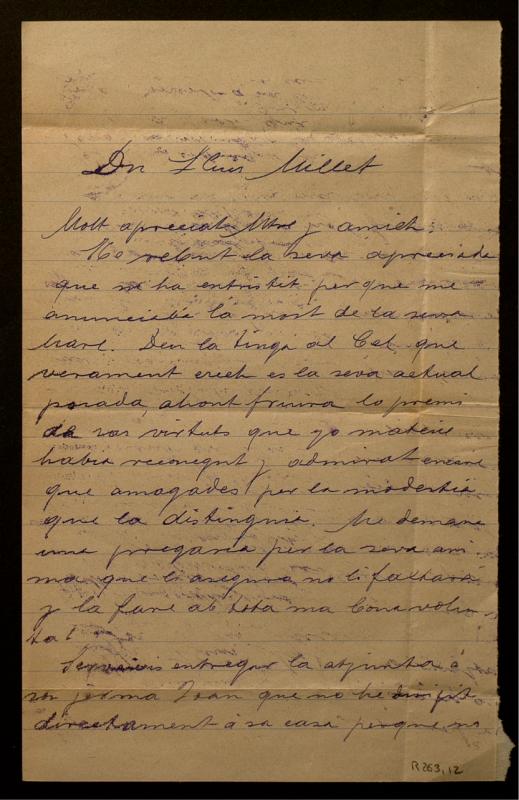 Dn Lluis Millet
Molt apreciat Mtre y amich:
He rebut la seva apreciada
que m ha entristit per que me
anunciaba la mort de la seva
Mare. Deu la tinga al Cel, que
verament crech es la seva actual
posada, ahont fruira lo premi
de sas virtuts que yo mateix
habia reconegut y admirat encare
que amagades per la modestia
que la distinguia. Me demana
una pregaria per la seva ani
ma que li asegura no li faltará
y la fare ab tota ma bona volun
tat
Serveixis entregar la adjunta á
son jerma Joan que no he dirigit
directament á sa casa perque no
R263,12